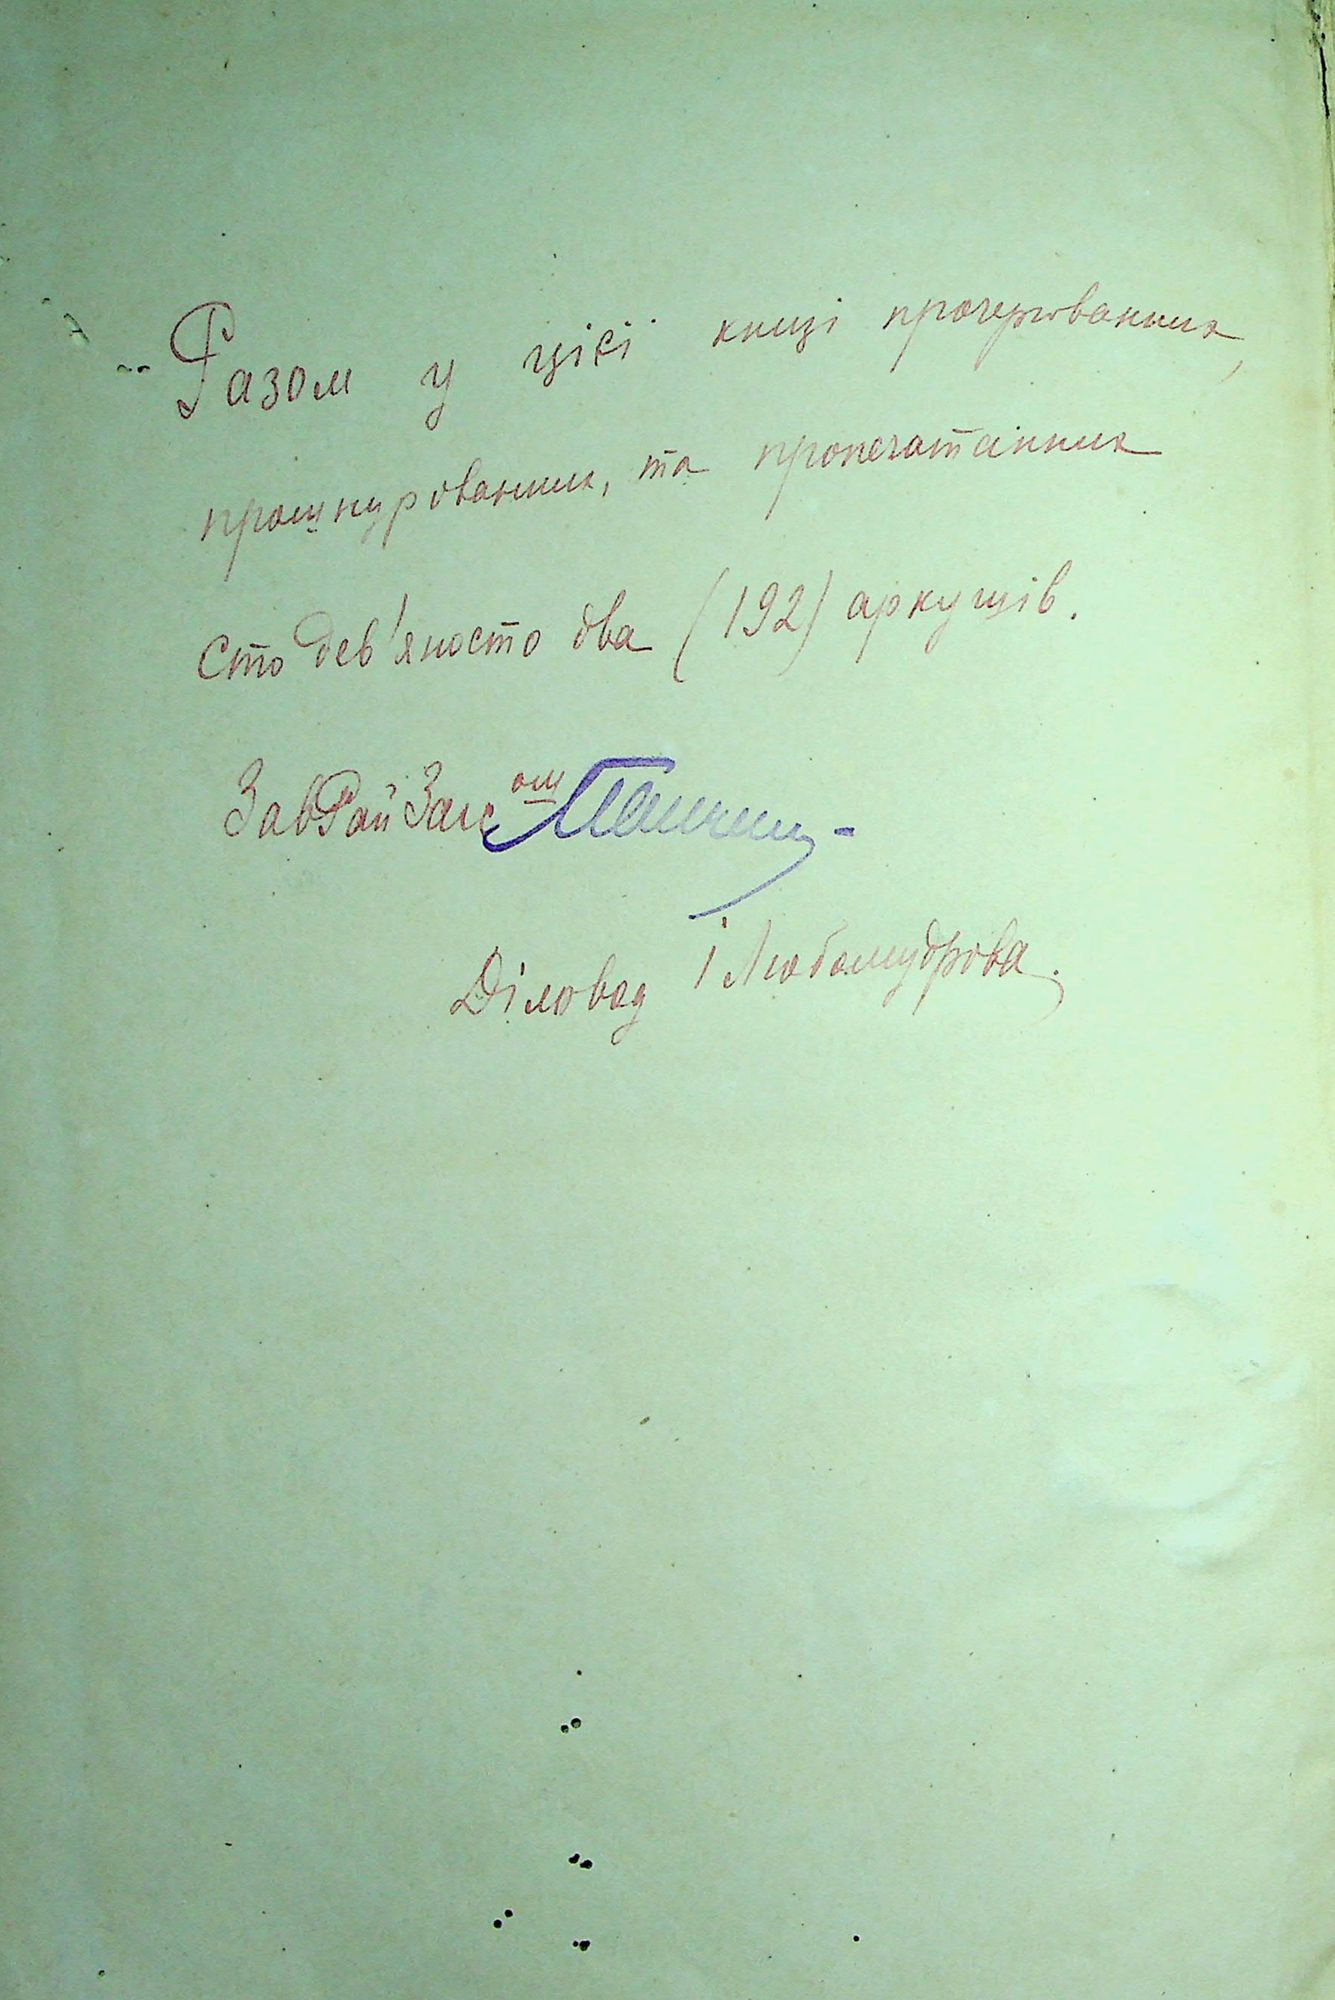 Разом у цієі книзі прочерованних,
прошнурованних, та пропечатанних
сто дев'яносто два (192) аркушів.
ЗавРайЗагсом
Діловод І Любомудрова.